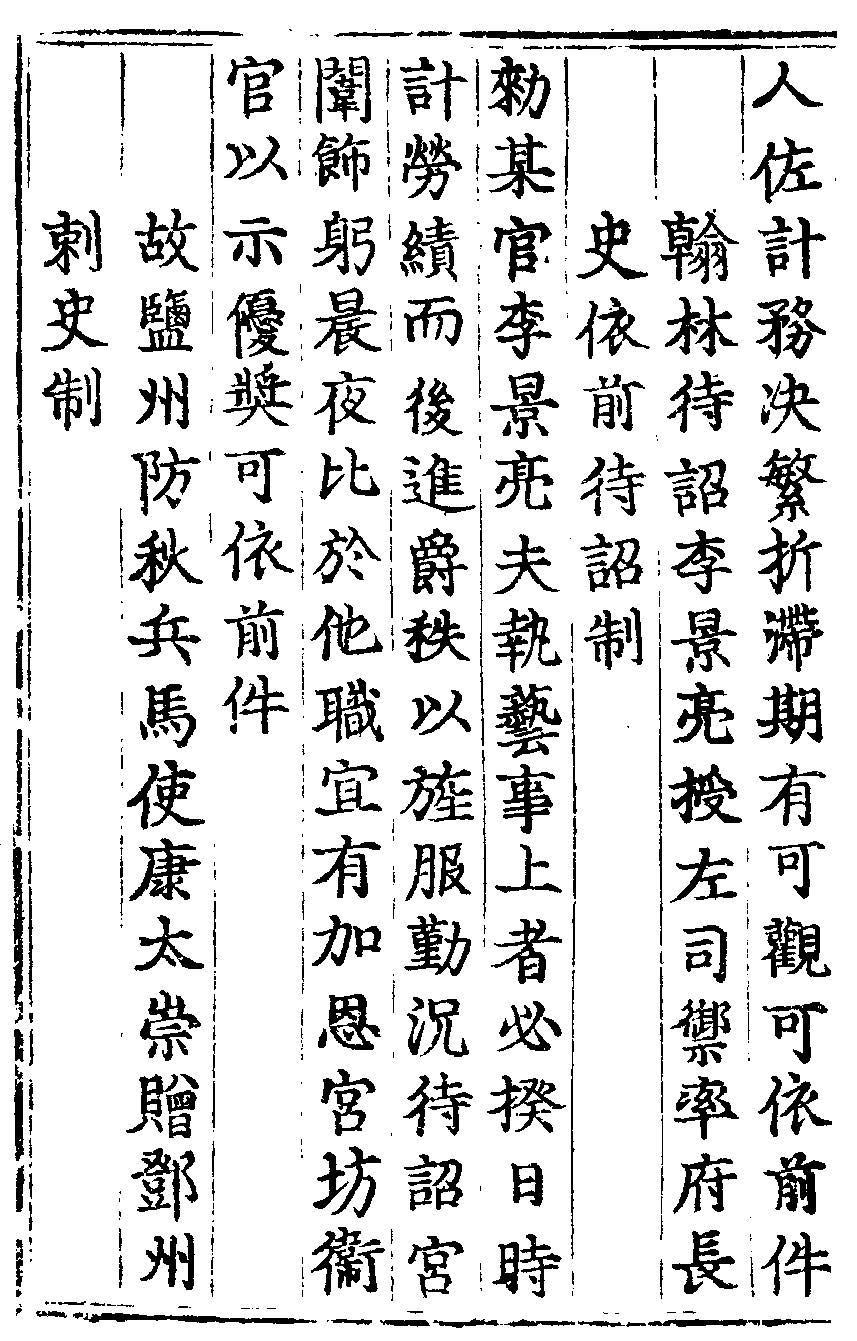 人佐計務决繁折滯期有可觀可依前件
翰林待詔李景亮授左司禦率府長
史依前待詔制
勑某官李景亮夫執藝事上者必揆日時
計勞績而後進爵秩以旌服勤況待詔宮
闈飾躬晨夜比於他職宜有加恩宮坊衛
官以示優奬可依前件
故鹽州防秋兵馬使康太崇贈鄧州
刺史制